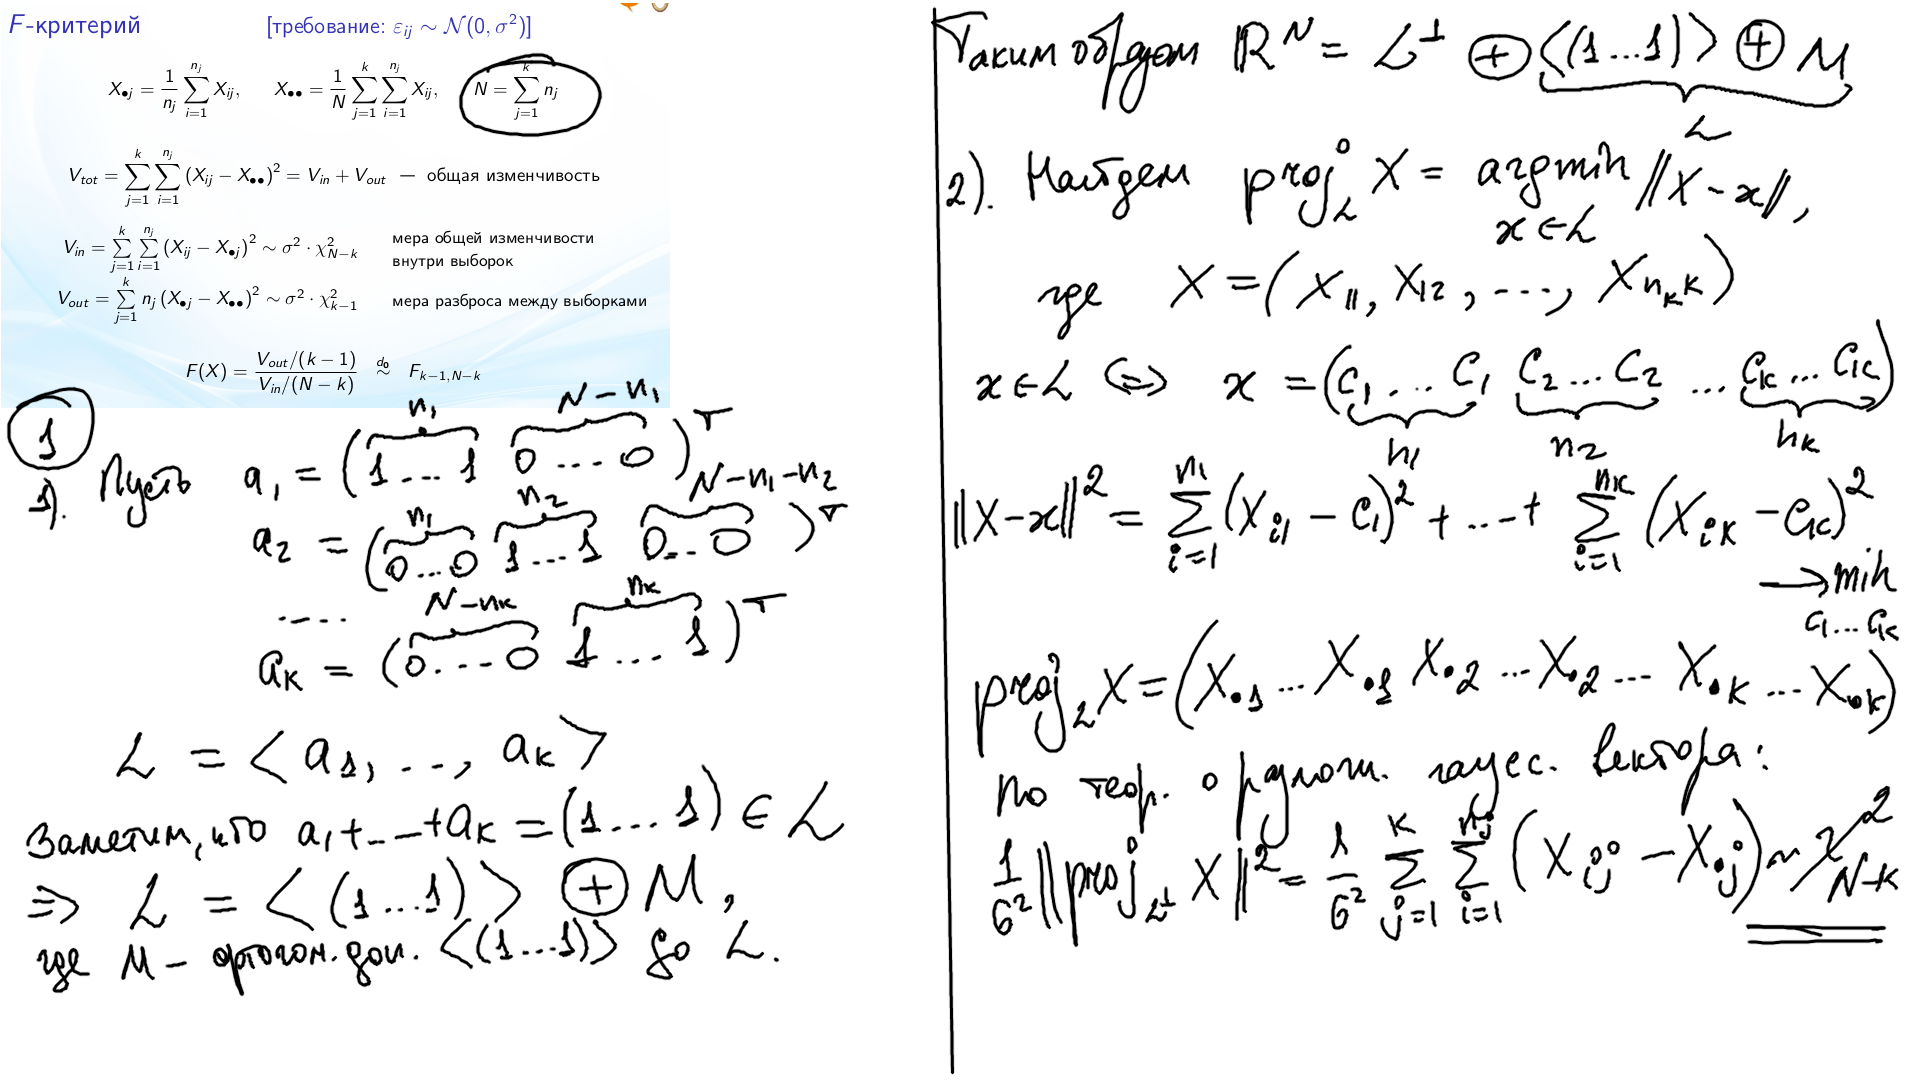 F-критерий [требование: ε_{ij} ∼ N(0, σ²)]
X_{•j} = \frac{1}{n_j} \sum_{i=1}^{n_j} X_{ij}, X_{••} = \frac{1}{N} \sum_{j=1}^{k} \sum_{i=1}^{n_j} X_{ij}, N = \sum_{j=1}^{k} n_j
V_{tot} = \sum_{j=1}^{k} \sum_{i=1}^{n_j} (X_{ij} − X_{••})² = V_{in} + V_{out} — общая изменчивость
V_{in} = \sum_{j=1}^{k} \sum_{i=1}^{n_j} (X_{ij} − X_{•j})² ∼ σ² · χ²_{N−k} мера общей изменчивости
внутри выборок
V_{out} = \sum_{j=1}^{k} n_j (X_{•j} − X_{••})² ∼ σ² · χ²_{k−1} мера разброса между выборками
F(X) = \frac{V_{out}/(k − 1)}{V_{in}/(N − k)} \overset{d_0}{∼} F_{k−1,N−k}
1
1). Пусть a_1 = (\overbrace{1 ... 1}^{n_1} \overbrace{0 .... 0}^{N−n_1})^T
a_2 = (\overbrace{0...0}^{n_1} \overbrace{1...1}^{n_2} \overbrace{0...0}^{N−n_1−n_2})^T
.....
a_k = (\overbrace{0....0}^{N−n_k} \overbrace{1 .... 1}^{n_k})^T
L = < a_1, ..., a_k >
Заметим, что a_1+...+a_k = (1...1) ∈ L
⇒ L = < (1...1) > ⊕ M,
где M – ортогон. доп. <(1...1)> до L.
Таким образом ℝ^N = L^⊥ ⊕ \underbrace{<(1...1)> ⊕ M}_{L}
2). Найдем proj_L X = argmin_{x∈L} ||X − x||,
где X = (X_{11}, X_{12}, ..., X_{n_k k})
x ∈ L ⇔ x = (\underbrace{c_1 ... c_1}_{n_1} \underbrace{c_2 ... c_2}_{n_2} ... \underbrace{c_k ... c_k}_{n_k})
||X−x||² = \sum_{i=1}^{n_1} (X_{i1} − c_1)² + ... + \sum_{i=1}^{n_k} (X_{ik} − c_k)²
→ min_{c_1...c_k}
proj_L X = (X_{•1} ... X_{•1} X_{•2} ... X_{•2} ... X_{•k} ... X_{•k})
по теор. о разлож. гаусс. вектора:
\frac{1}{σ²} ||proj_{L^⊥} X||² = \frac{1}{σ²} \sum_{j=1}^{k} \sum_{i=1}^{n_j} (X_{ij} − X_{•j}) ∼ χ²_{N−k}